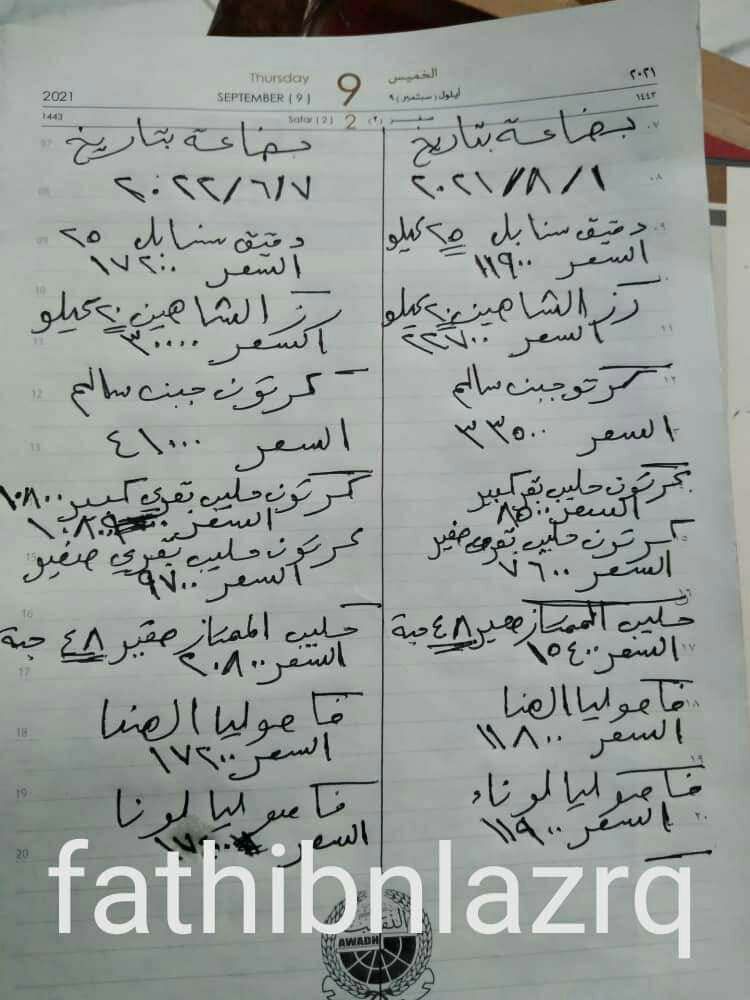 2021
Thursday
SEPTEMBER ( 9 )
9
الخميس
أيلول (سبتمبر) ٩
٢٠٢١
١٤٤٣
1443
Safar ( 2 )
2
صفر (٢)
بضاعة بتاريخ
٢٠٢١/٨/١
دقيق سنابل ٢٥ كيلو
السعر ١١٩٠٠
رز الشاهين ٢٠ كيلو
السعر ٢٢٧٠٠
كرتو جبن سالم
السعر ٣٣٥٠٠
كرتون حليب بقر كبير
السعر ٨٥٠٠
كرتون حليب بقري صغير
السعر ٧٦٠٠
حليب الممتاز صغير ٤٨ حبة
السعر ١٥٤٠٠
فاصوليا الهنا
السعر ١١٨٠٠
فاصوليا لونا
السعر ١١٩٠٠
بضاعة بتاريخ
٢٠٢٢/٦/٧
دقيق سنابل ٢٥
السعر ١٧٢٠٠
رز الشاهين ٢٠ كيلو
السعر ٣٠٠٠٠
كرتون جبن سالم
السعر ٤١٠٠٠
كرتون حليب بقري كبير ١٠٨٠٠
السعر
كرتون حليب بقري صغير
السعر ٩٧٠٠
حليب الممتاز صغير ٤٨ حبة
السعر ٢٠٨٠٠
فاصوليا الهنا
السعر ١٧٢٠٠
فاصوليا لونا
السعر
fathibnlazrq
النقيب
AWADH